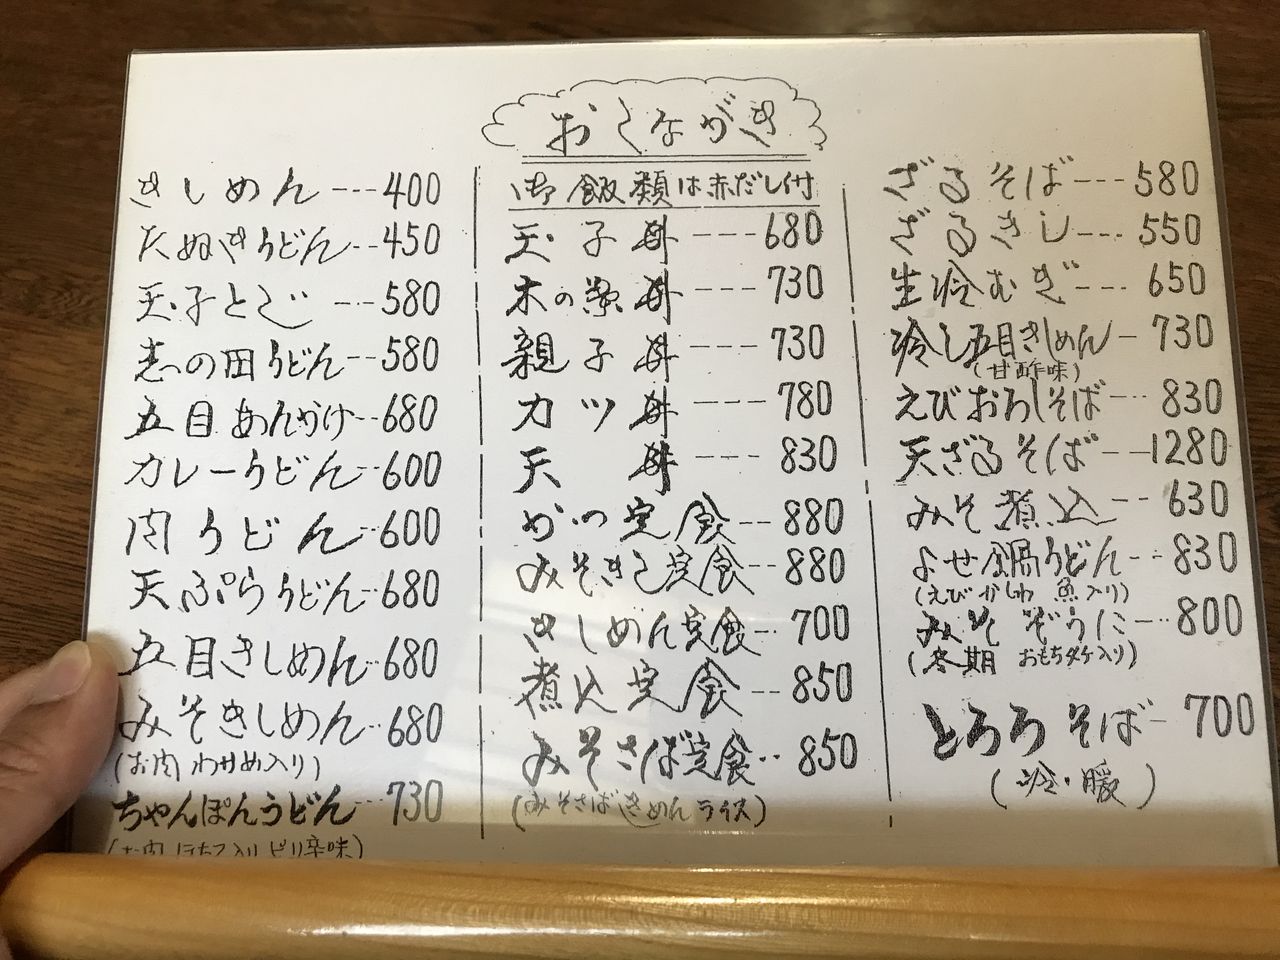 おしながき
きしめん---400
たぬきうどん--450
玉子とじ---580
志の田うどん--580
五目あんかけ--680
カレーうどん--600
肉うどん--600
天ぷらうどん--680
五目きしめん--680
みそきしめん--680
(お肉 わかめ入り)
ちゃんぽんうどん---730
(お肉 もち入り ピリ辛味)
御飯類は赤だし付
玉子丼---680
木の葉丼---730
親子丼---730
カツ丼---780
天丼---830
かつ定食--880
みそきし定食--880
きしめん定食--700
煮込定食--850
みそさば定食--850
(みそさば きしめん ライス)
ざるそば---580
ざるきし---550
生冷むぎ---650
冷し五目きしめん-730
(甘酢味)
えびおろしそば---830
天ざるそば---1280
みそ煮込--630
よせ鍋うどん--830
(えび かしわ 魚入り)
みそぞうに--800
(冬期 おもち2ケ入り)
とろろそば-700
(冷・暖)